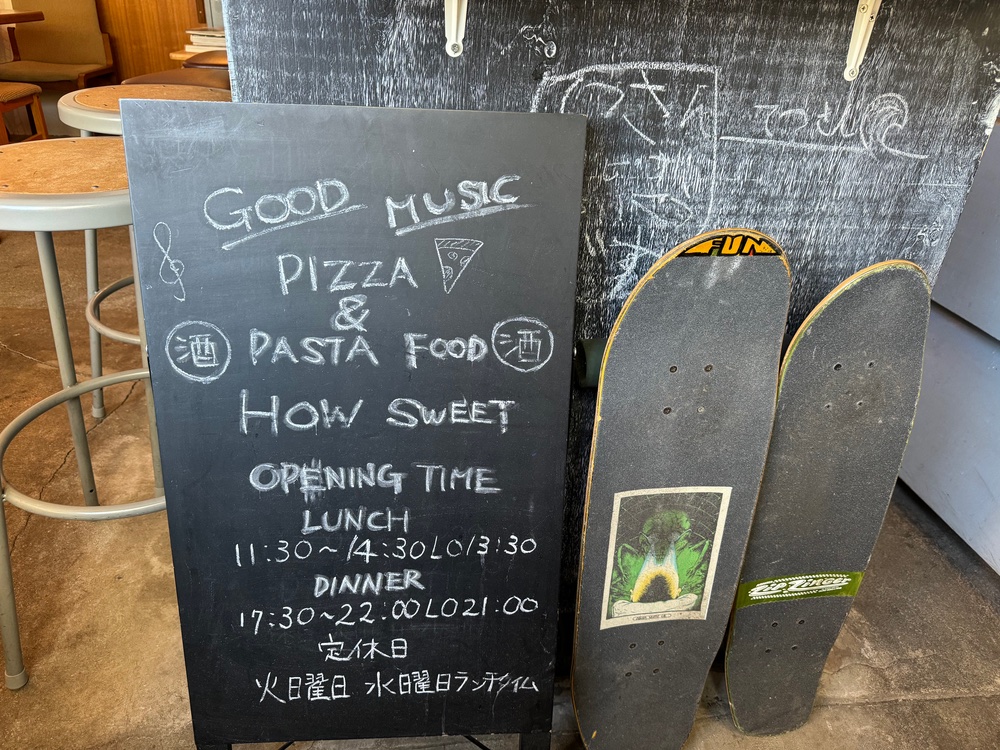 GOOD MUSIC
PIZZA
&
酒 PASTA FOOD 酒
HOW SWEET
OPENING TIME
LUNCH
11:30~14:30LO13:30
DINNER
17:30~22:00LO21:00
定休日
火日曜日 水日曜日ランチタイム
FUN
Zip Zinger